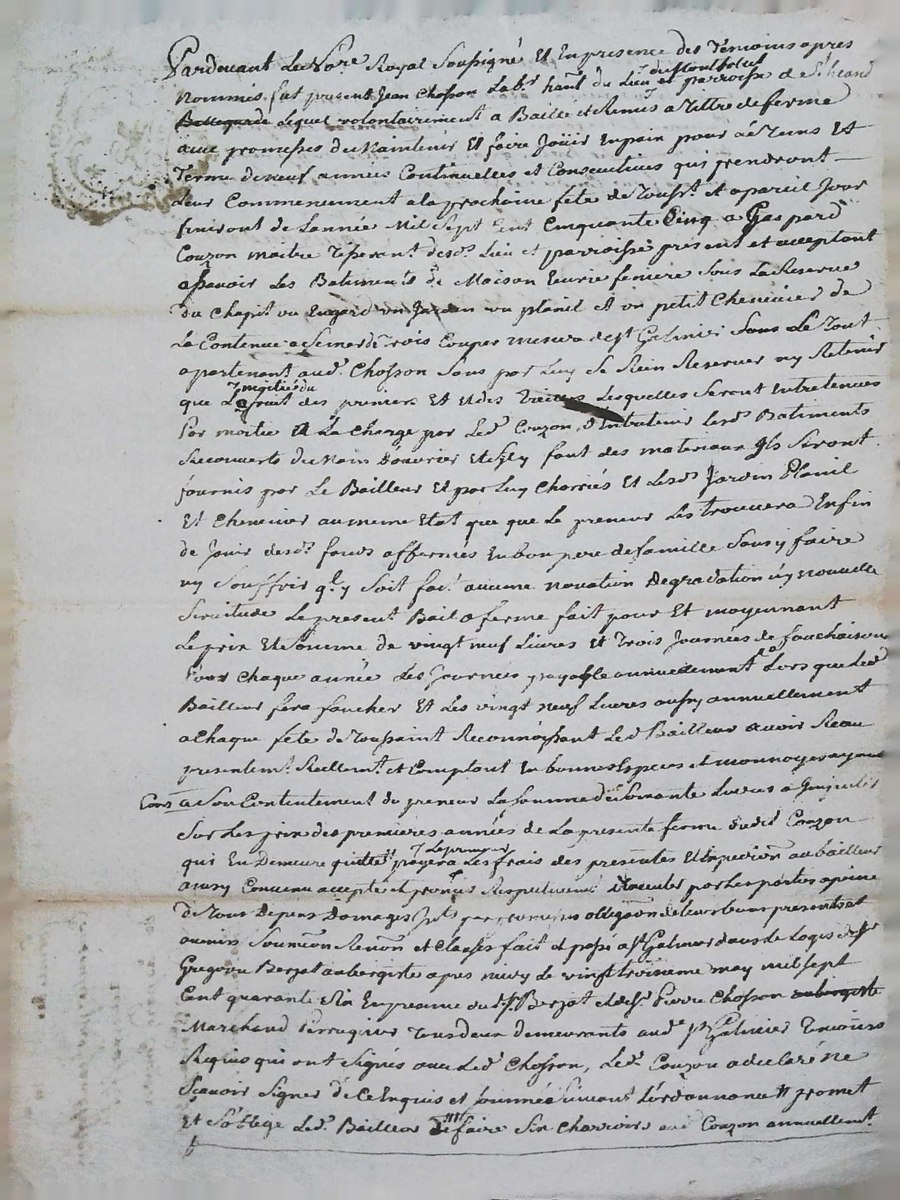 Pardevant Le No.re Royal Soussigné Et En presence des Témoins apres
du Montholus
nommés fut present Jean Chosson Lab.r hant du Lieu et parroisse de S.t heand
Bellegarde Lequel volontairement a Baillé et Remis a tittre de ferme
avec promesses de Maintenir Et faire Joüir En paix pour Le Tems Et
Terme de neuf années Continuelles et Consecutives qui prendront
Leur Commencement a la prochaine fête de Touss.t Et a pareil Jour
finiront de Lannée Mil Sept Cent Cinquante Cinq a Gaspard
Couzon maitre Tisserant desd. Lieu et parroisse present et acceptant
assavoir Les Batiments de Maison Ecurie feniere Sous La Reserve
du Chapit ou Engard un Jardin un planil Et un petit Chenevier de
La Contenue a Semer de Trois Coupes mesure de S.t Galmier Sans Le Tout
apartenant aud. Chosson Sans par Luy Se Rien Reserver ny Retenir
moitié du
que Le fruit des premiers Et et des Lesquelles Seront Entretenues
Par moitié a La Charge par Led. Couzon d'Entretenir Lesd. Batiments
Recouverts de Main d'ouvrier Et Sil y faut des materiaux Ils Seront
fournis par Le Bailleur Et par Luy Charriés Et Lesd. Jardin Planil
Et Chenevier au meme Etat que que Le preneur Les trouvera Enfin
de Jouir desd. fonds affermés En bon pere de famille Sans y faire
ny Souffrir q.l y Soit fait aucune novation Degradation ny nouvelle
Servitude Le present Bail a ferme fait pour Et moyennant
Le prix Et Somme de vingt neuf Livres Et Trois Journées de fauchaison
Pour Chaque année Les Journées payable annuellement Lors que Led.
Bailleur fera faucher Et Les vingt neuf Livres aussy annuellement
a Chaque fête de Toussaint Reconnoissant Led. Bailleur avoir Receu
presentem.t Reellem.t et Comptant En bonnes Especes et monnoyes ayant
Cours a Son Contentement du preneur La Somme de Soixante Livres
Sur Les prix des premieres années de La presente ferme dud. Couzon
Le preneur
qui En Demeure quitte payera Les frais des presentes Et Expedition au bailleur
ainsy Convenu accepté et promis Respectivement Executer par Les parties a peine
de Tous Depens Domages obligaon de Leurs biens presents et
avenirs Soumon Renon et Clauses fait et passé a S.t Galmier dans Le Logis de S.r
Gregoire Berzat aubergiste apres midy Le vingt troisieme may mil sept
Cent quarante Six En presence dud. S.r Berzat et de S.r Pierre Chosson aubergiste
Marchand Perruquier Tous deux demeurants aud. S.t Galmier Temoins
Requis qui ont Signés avec Led. Chosson, Led. Couzon a declaré ne
Sçavoir Signer de Ce Enquis et Sommé Suivant L'ordonnance promet
Et S'oblige Led. Bailleur de faire Six Charrois aud. Couzon annuellem.t